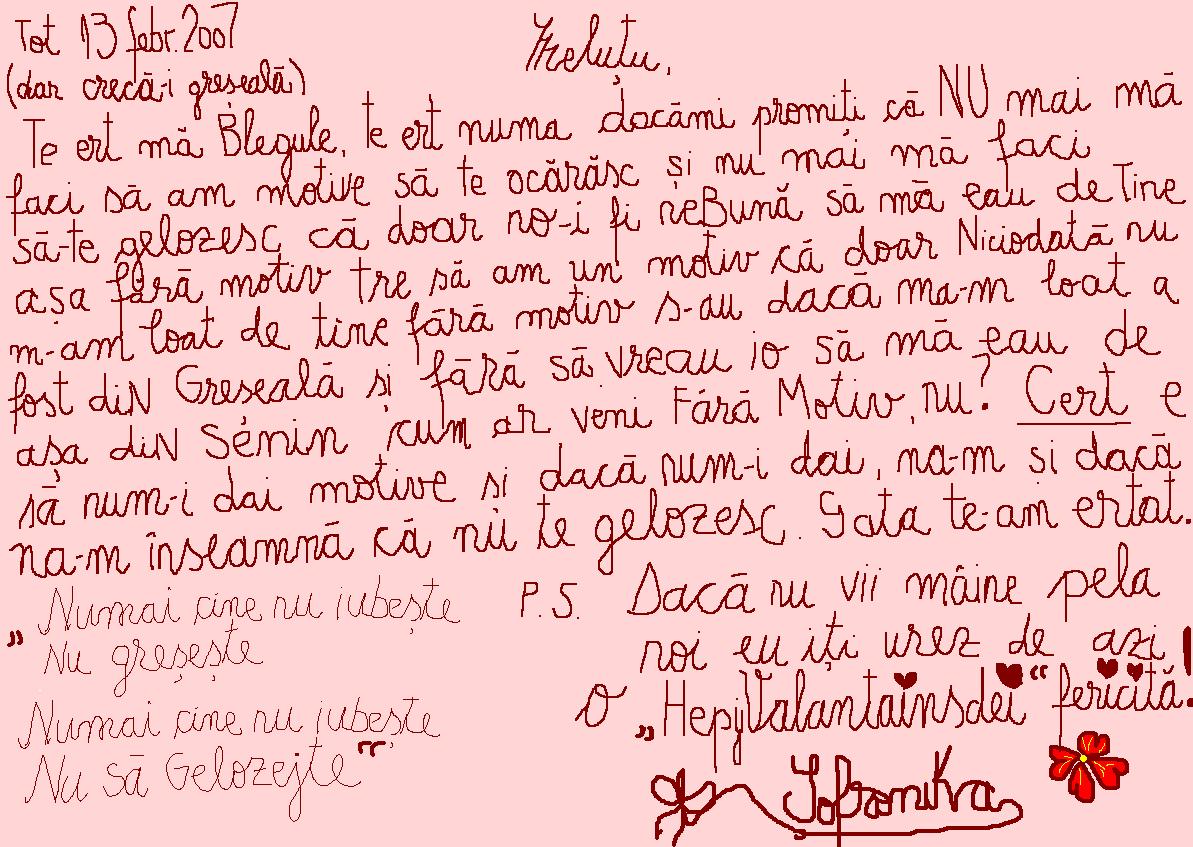 Tot 13 febr. 2007
(dar crecă-i greșeală)
Treluțu,
Te ert mă Blegule, te ert numa dacămi promiti că NU mai mă
faci să am motive să te ocărăsc și nu mai mă faci
să-te gelozesc că doar no-i fi neBună să mă eau de Tine
așa fără motiv tre să am un motiv că doar Niciodată nu
m-am loat de tine fără motiv s-au dacă ma-m loat a
fost diN Greseală și fără să vreau io să mă eau de
așa diN Senin cum ar veni Fără Motiv, nu? Cert e
să num-i dai motive și dacă num-i dai, na-m si dacă
na-m înseamnă că nu te gelozesc. Gata te-am ertat.
„Numai cine nu iubește
Nu greșește
Numai cine nu iubește
Nu să Gelozejte“
P.S. Dacă nu vii mâine pela
noi eu iți urez de azi!
O „HepyValantainsdei“ fericită!
Sofronikva